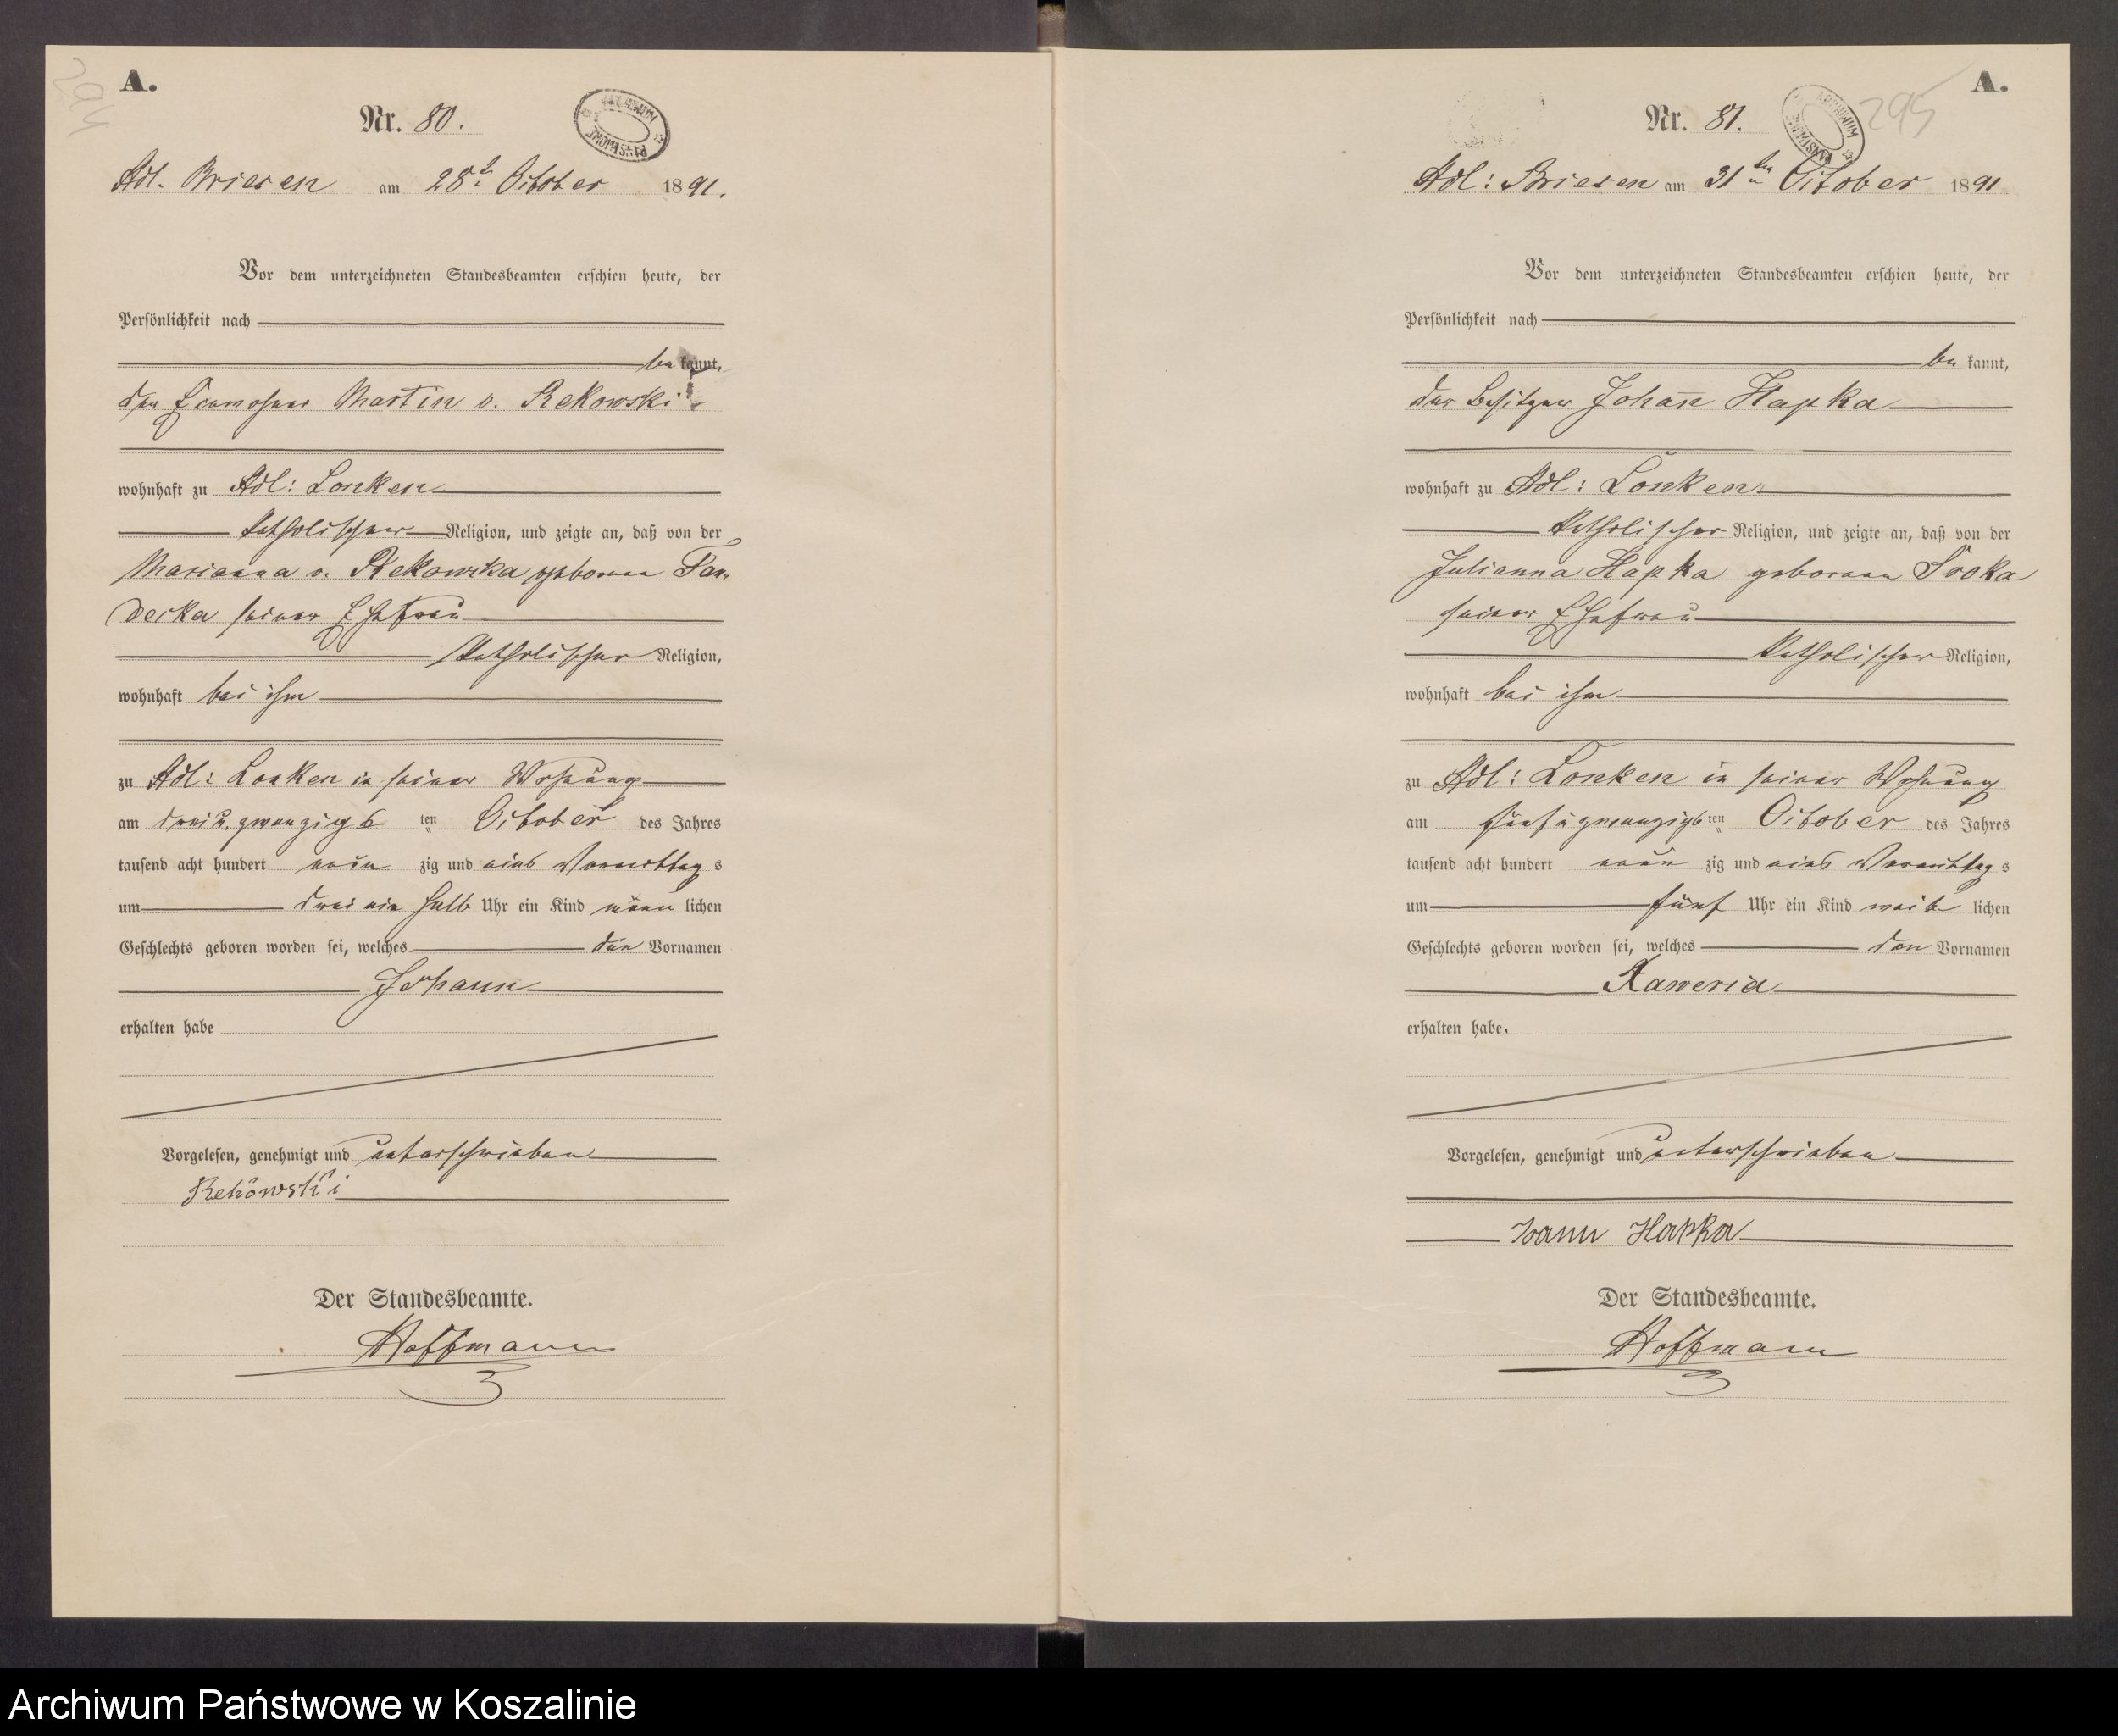 294
A.
Nr. 80.
ARCHIWUM PAŃSTWOWE
Adl. Briesen am 28t October 1891.
Vor dem unterzeichneten Standesbeamten erschien heute, der
Persönlichkeit nach
be kannt,
der Einwohner Martin v. Rekowski
wohnhaft zu Adl: Lonken
katholischer Religion, und zeigte an, daß von der
Marianna v. Rekowska geborene
seiner Ehefrau
katholischer Religion,
wohnhaft bei ihm
zu Adl: Lonken in seiner Wohnung
am drei u. zwanzigs ten October des Jahres
tausend acht hundert neun zig und eins Vormittag s
um drei ein halb Uhr ein Kind männ lichen
Geschlechts geboren worden sei, welches den Vornamen
Johann
erhalten habe
Vorgelesen, genehmigt und unterschrieben
Rekowski
Der Standesbeamte.
Hoffmann
A.
295
Nr. 81.
ARCHIWUM PAŃSTWOWE
Adl: Briesen am 31ten October 1891
Vor dem unterzeichneten Standesbeamten erschien heute, der
Persönlichkeit nach
be kannt,
der Besitzer Johann Hapka
wohnhaft zu Adl: Lonken
katholischer Religion, und zeigte an, daß von der
Julianna Hapka geborene
seiner Ehefrau
katholischer Religion,
wohnhaft bei ihm
zu Adl: Lonken in seiner Wohnung
am fünf u zwanzigs ten October des Jahres
tausend acht hundert neun zig und eins Vormittag s
um fünf Uhr ein Kind weib lichen
Geschlechts geboren worden sei, welches den Vornamen
Xaweria
erhalten habe.
Vorgelesen, genehmigt und unterschrieben
Joann Hapka
Der Standesbeamte.
Hoffmann
Archiwum Państwowe w Koszalinie